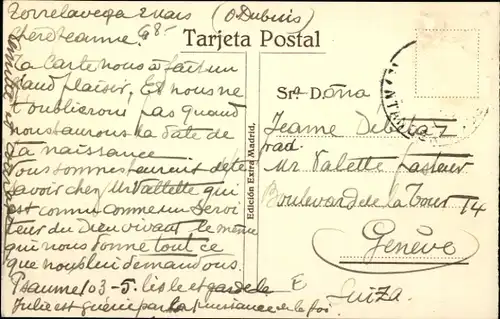 Torrelavega 2 Mars (O Dubuis)
Chère Jeanne.
Ta Carte nous a fait un
grand plaisir. Et nous ne
t'oublierons pas quand
nous saurons la date de
ta naissance.
Nous sommes heureux de te
savoir chez Mr Vallette qui
est connu comme un servi-
teur du Dieu vivant le même
qui nous donne tout ce
que nous lui demandons.
Psaume 103-5. lis le et garde le
Julie est guérie par la puissance de la foi.
Tarjeta Postal
Edición Extra Madrid.
Sra Doña
Jeanne
Mr Valette Pasteur
Boulevard de la Tour 14
Genève
Suiza.